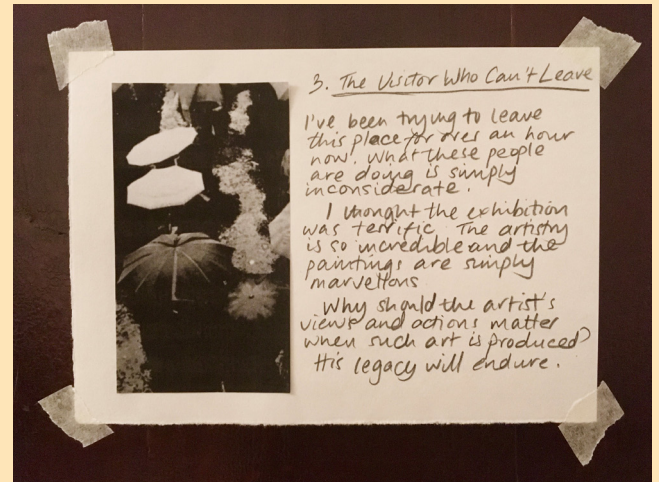 3. The Visitor Who Can't Leave
I've been trying to leave
this place for over an hour
now. What these people
are doing is simply
inconsiderate.
I thought the exhibition
was terrific. The artistry
is so incredible and the
paintings are simply
marvellous
Why should the artist's
views and actions matter
when such art is produced?
His legacy will endure.